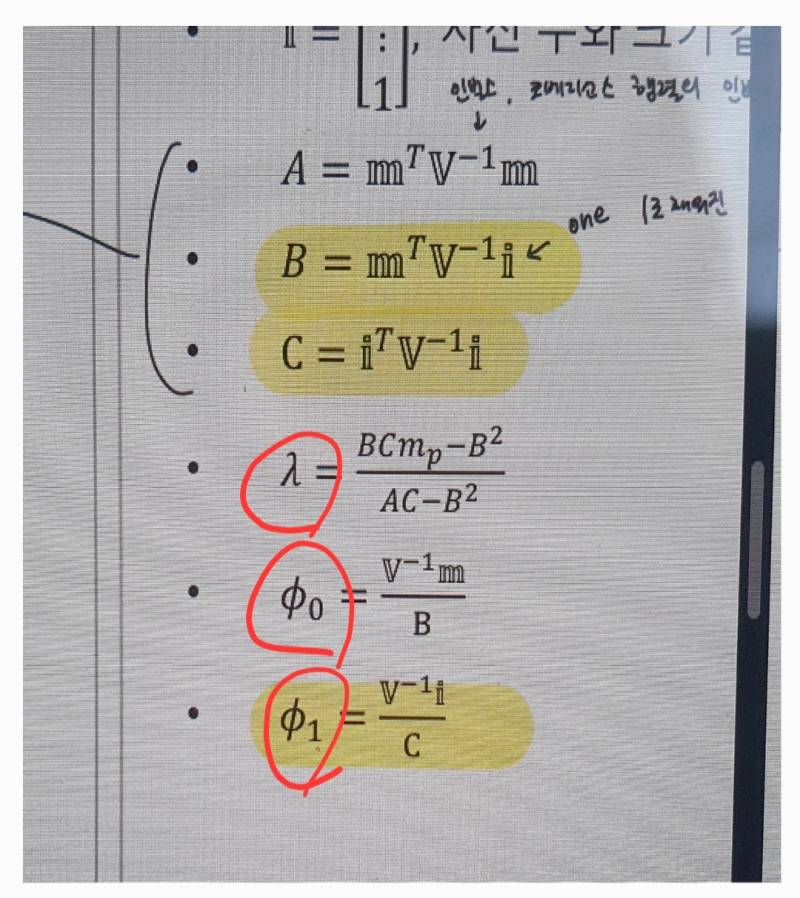 𝕚 = [⋮ 1], 자산 수와 크기
인버스, 코베리언스 행렬의 인버
↓
• A = 𝕞ᵀ𝕍⁻¹𝕞
one 1로 채워진
• B = 𝕞ᵀ𝕍⁻¹𝕚 ↙
• C = 𝕚ᵀ𝕍⁻¹𝕚
• λ = (BCmₚ−B²)/(AC−B²)
• ϕ₀ = 𝕍⁻¹𝕞/B
• ϕ₁ = 𝕍⁻¹𝕚/C